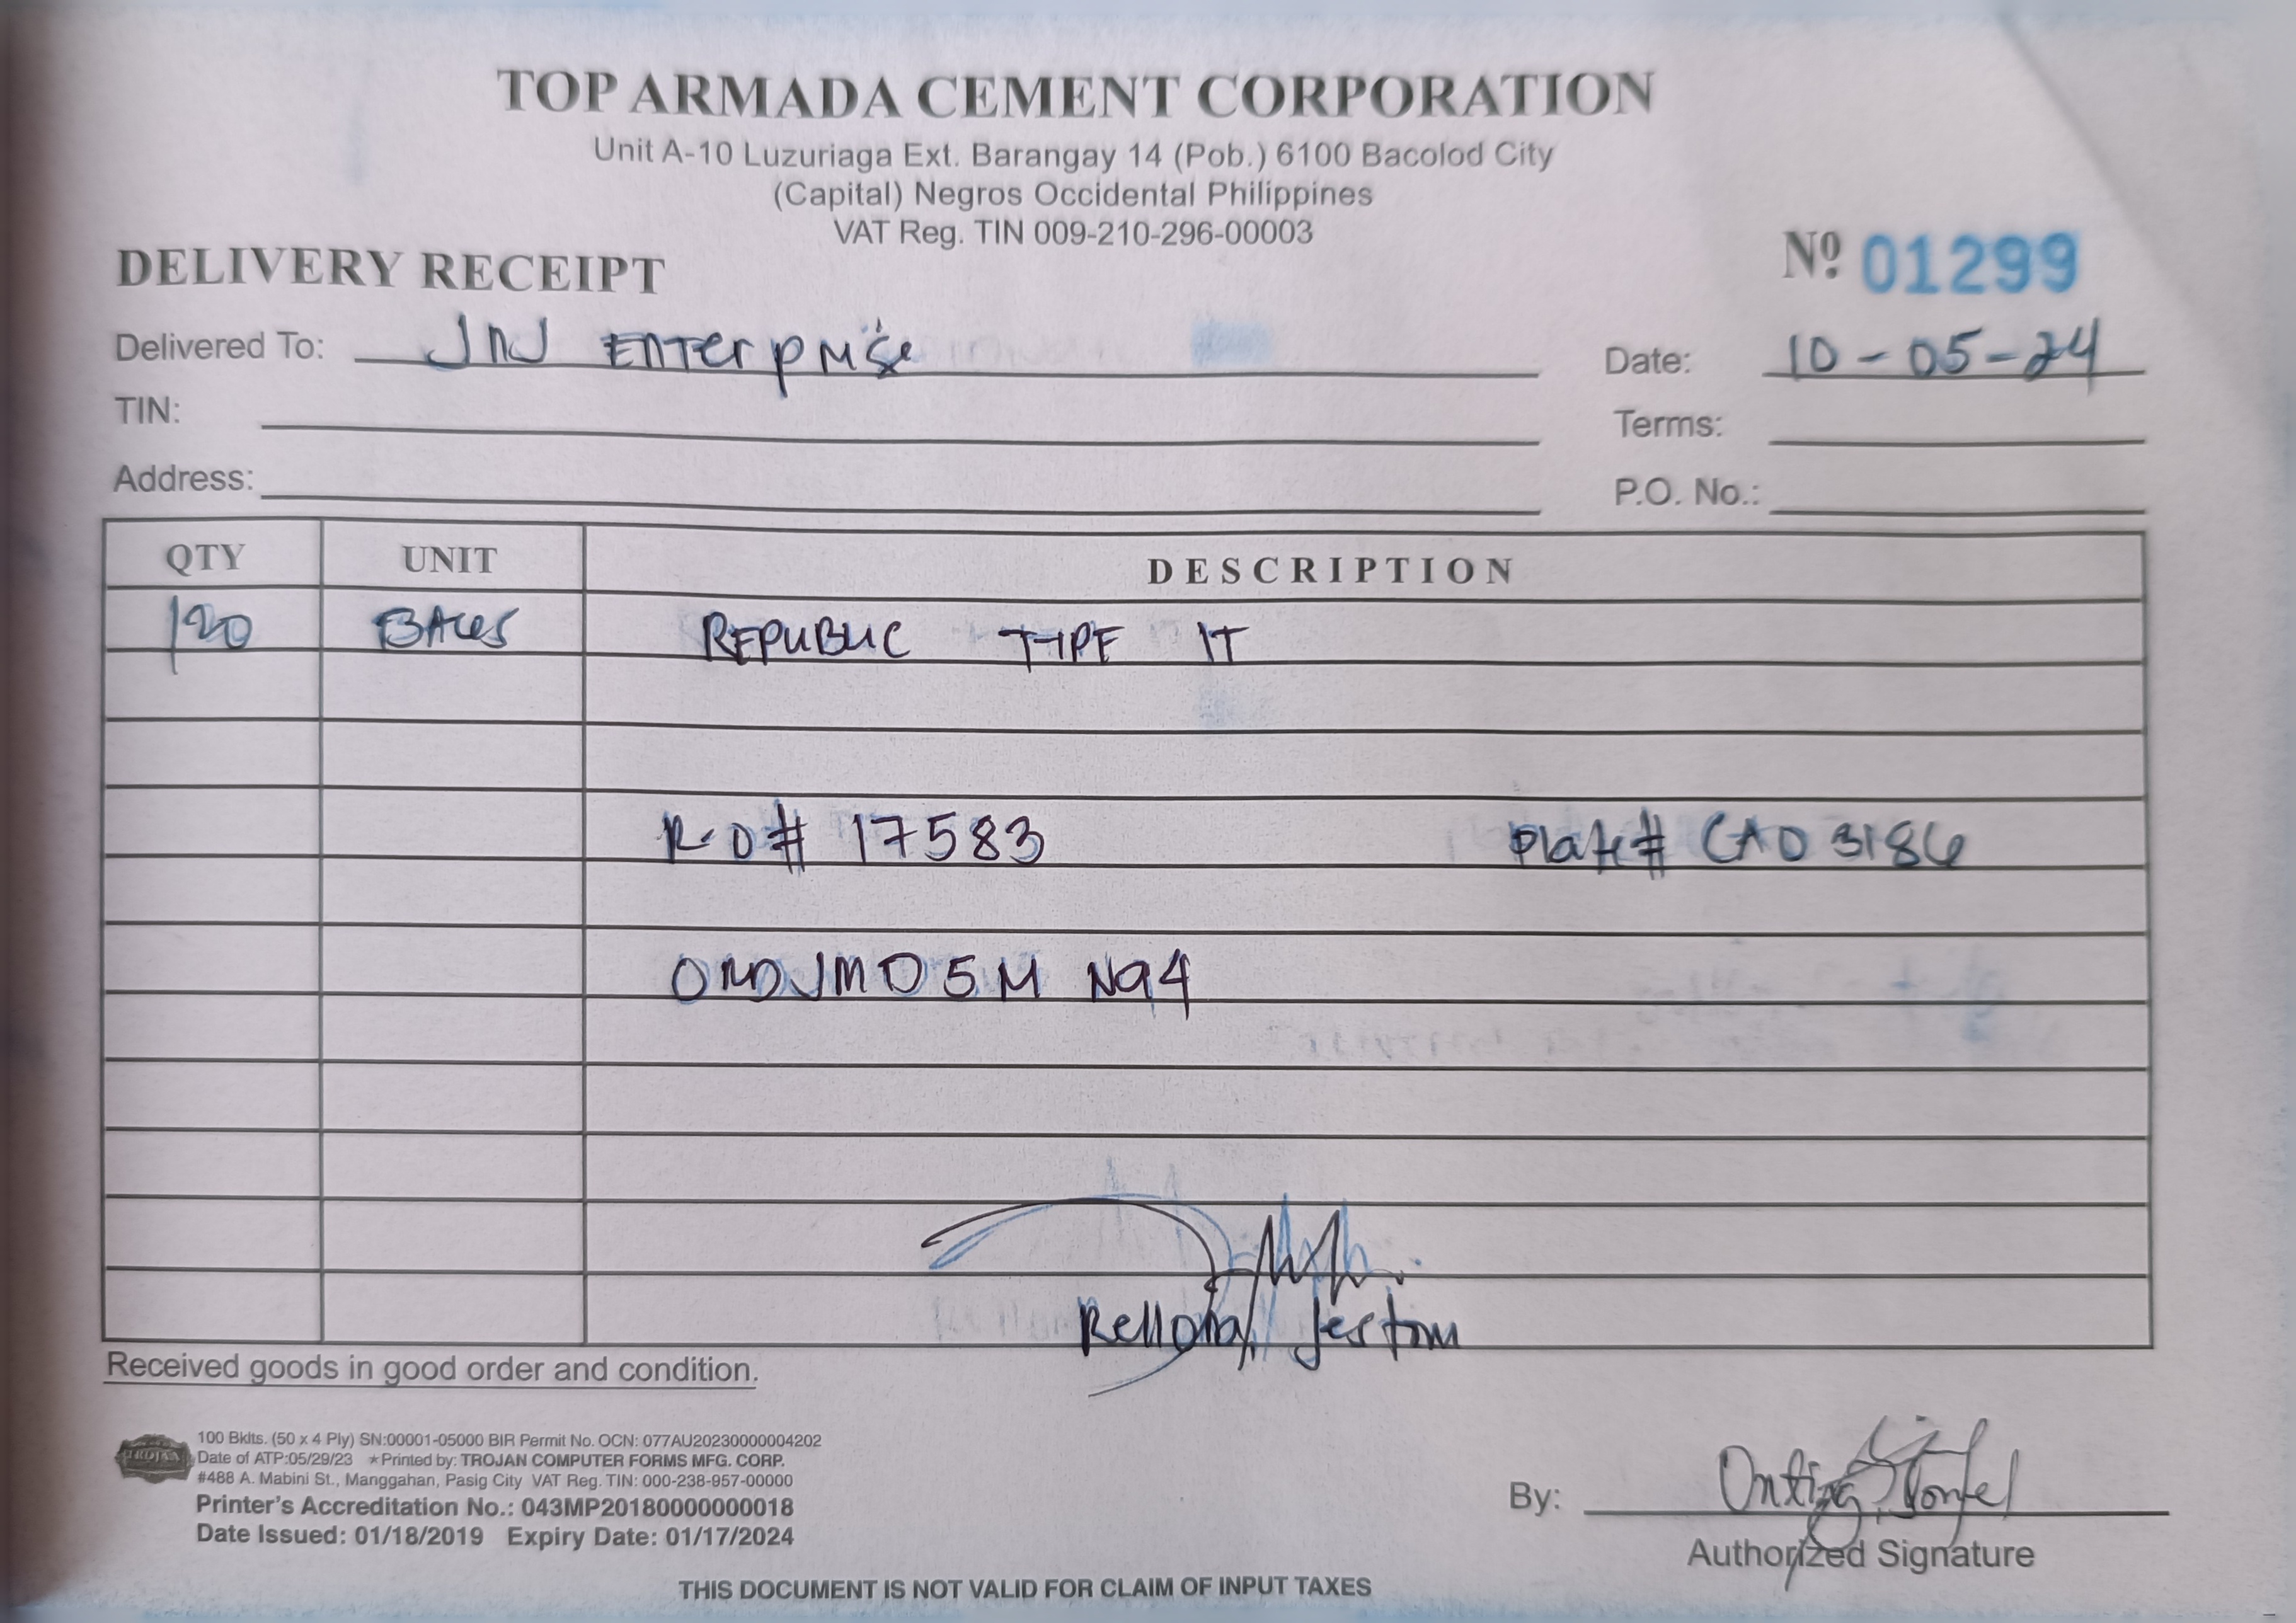 TOP ARMADA CEMENT CORPORATION
Unit A-10 Luzuriaga Ext. Barangay 14 (Pob.) 6100 Bacolod City
(Capital) Negros Occidental Philippines
VAT Reg. TIN 009-210-296-00003
DELIVERY RECEIPT
Nº 01299
Delivered To: JNJ ENTErprise
Date: 10-05-24
TIN:
Terms:
Address:
P.O. No.:
QTY UNIT DESCRIPTION
120 BAGS REPUBLIC TYPE IT
R.O# 17583 Plate# CAO 3186
5M N94
Jestom
Received goods in good order and condition.
TROJAN
100 Bklts. (50 x 4 Ply) SN:00001-05000 BIR Permit No. OCN: 077AU20230000004202
Date of ATP:05/29/23 ★Printed by: TROJAN COMPUTER FORMS MFG. CORP.
#488 A. Mabini St., Manggahan, Pasig City VAT Reg. TIN: 000-238-957-00000
Printer's Accreditation No.: 043MP20180000000018
Date Issued: 01/18/2019 Expiry Date: 01/17/2024
By:
Authorized Signature
THIS DOCUMENT IS NOT VALID FOR CLAIM OF INPUT TAXES